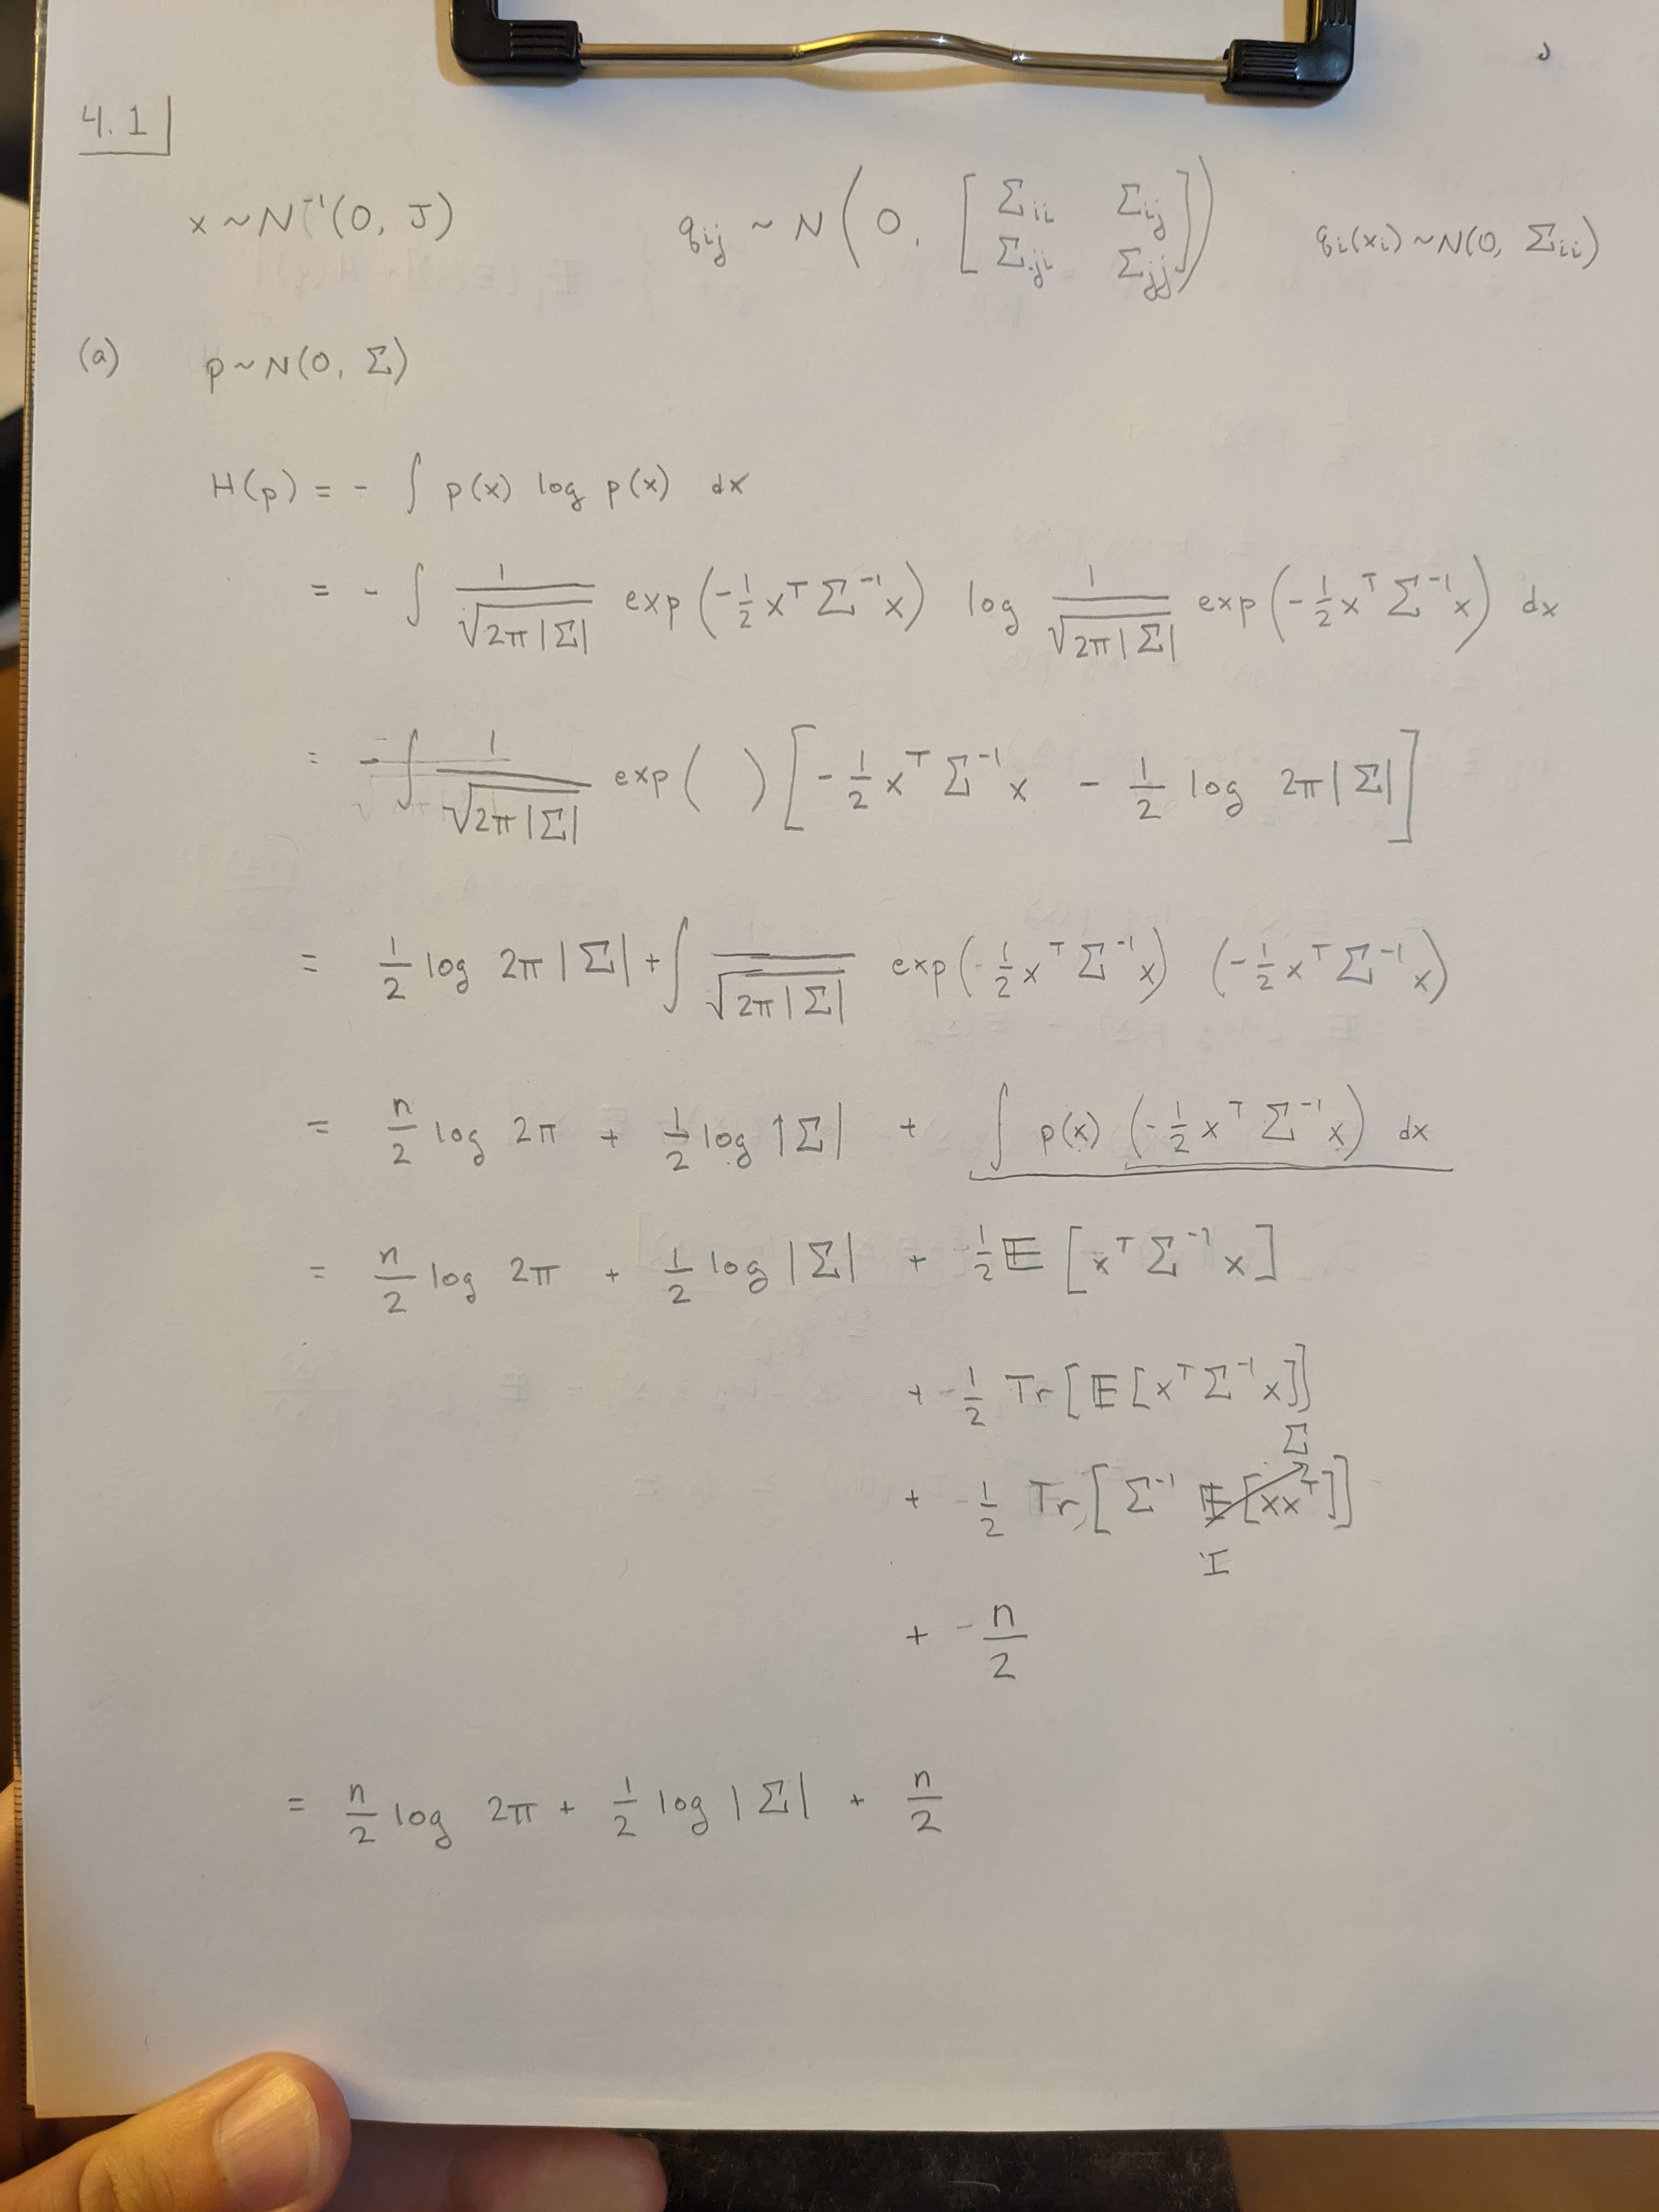 4.1
x ~ N⁻¹(0, J) q_ij ~ N(0, [Σ_ii Σ_ij; Σ_ji Σ_jj]) q_i(x_i) ~ N(0, Σ_ii)
(a) p ~ N(0, Σ)
H(p) = - ∫ p(x) log p(x) dx
= - ∫ 1/√(2π|Σ|) exp(-½ xᵀ Σ⁻¹ x) log 1/√(2π|Σ|) exp(-½ xᵀ Σ⁻¹ x) dx
= - ∫ 1/√(2π|Σ|) exp( ) [-½ xᵀ Σ⁻¹ x - ½ log 2π|Σ|]
= ½ log 2π|Σ| + ∫ 1/√(2π|Σ|) exp(-½ xᵀ Σ⁻¹ x) (-½ xᵀ Σ⁻¹ x)
= n/2 log 2π + ½ log |Σ| + ∫ p(x) (-½ xᵀ Σ⁻¹ x) dx
= n/2 log 2π + ½ log |Σ| + -½ 𝔼 [xᵀ Σ⁻¹ x]
+ -½ Tr[𝔼[xᵀ Σ⁻¹ x]]
Σ
+ -½ Tr[Σ⁻¹ 𝔼[xxᵀ]]
I
+ - n/2
= n/2 log 2π + ½ log |Σ| + n/2